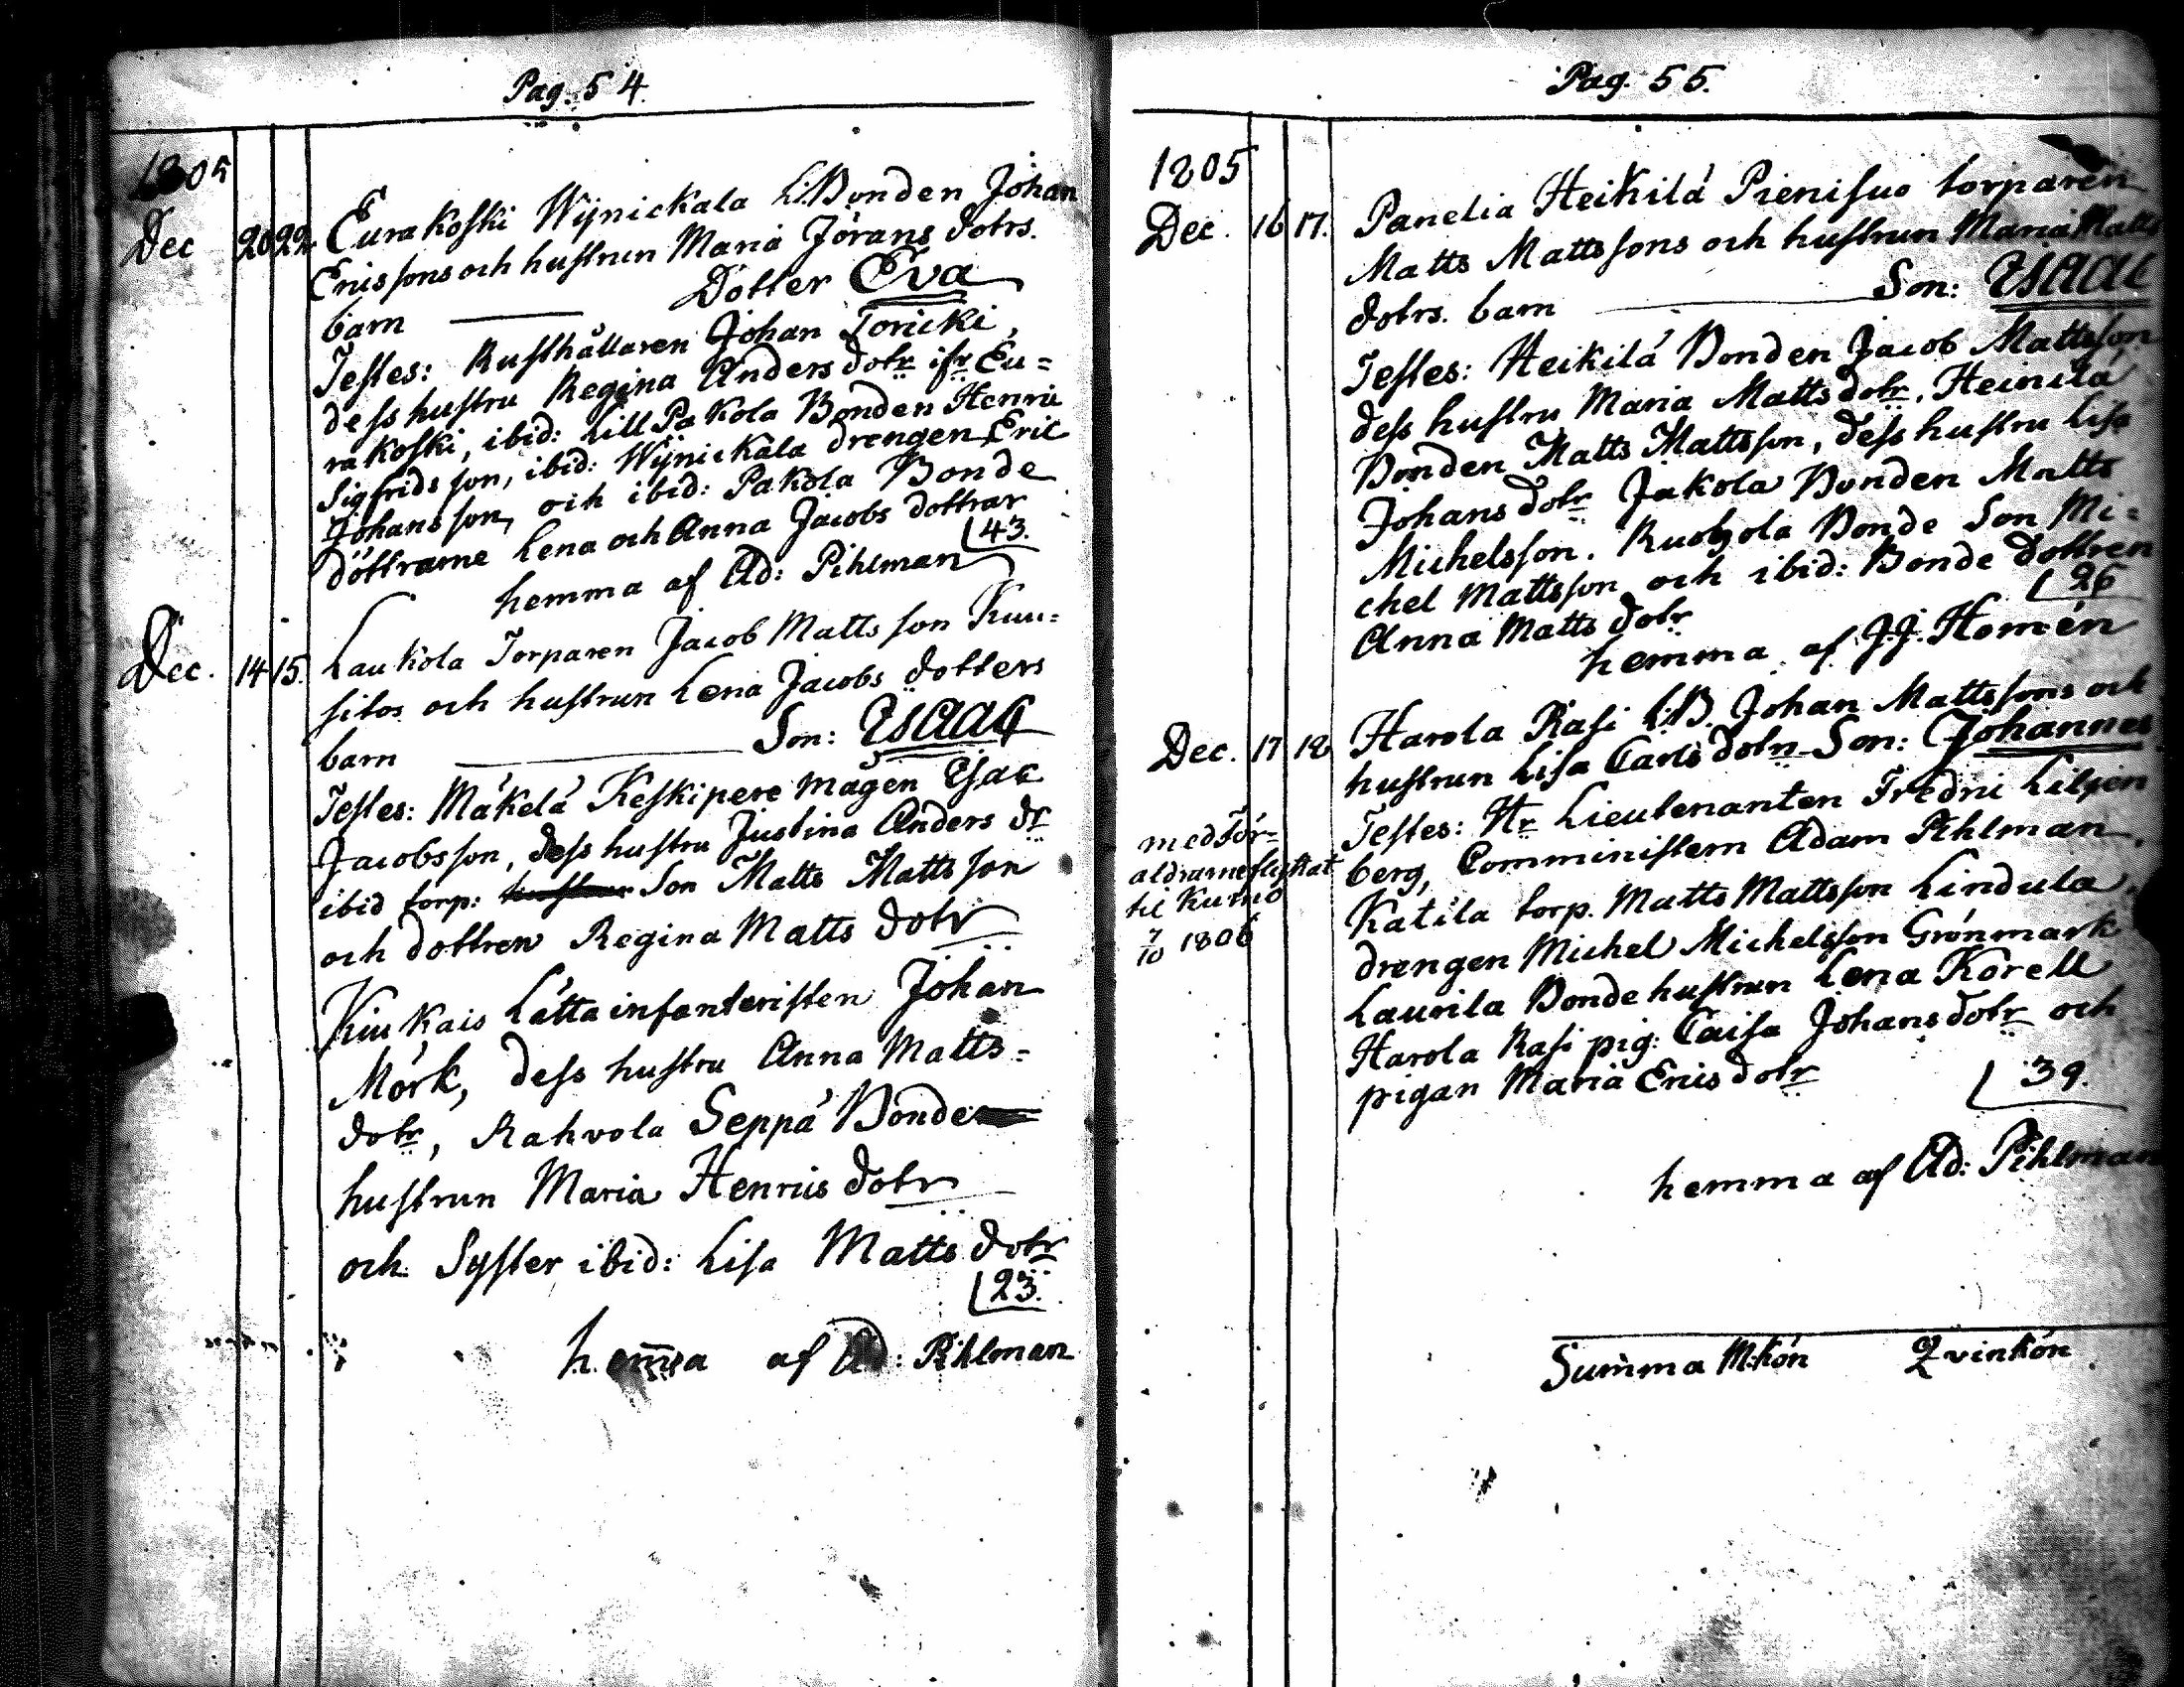 Pag. 54.
1805
Dec 20 22. Eurakoski Wijnickala L:Bonden Johan
Ericssons och hustrun Maria Jörans dotrs.
barn Dotter Eva
Testes: Rusthållaren Johan Toricki,
dess hustru Regina Anders dotr ifr Eu=
rakoski, ibid: Lill Pakola Bonden Henric
Sigfridsson, ibid: Wijnickala drengen Eric
Johansson, och ibid: Pakola Bonde
döttrarne Lena och Anna Jacobs dottrar
43.
hemma af Ad: Pihlman
Dec. 14 15. Laukola Torparen Jacob Mattsson Kuu=
sitos och hustrun Lena Jacobs dotters
barn Son: Esaac
Testes: Mäkelä Keskipere mågen Esac
Jacobsson, dess hustru Justina Anders dr
ibid torp: Son Matts Mattsson
och dottren Regina Matts dotr
Kiukais Lätta infanteristen Johan
Mörk, dess hustru Anna Matts=
dotr, Rahvola Seppä Bonde
hustrun Maria Henrics dotr
och Syster ibid: Lisa Matts dotr
23.
hem̄a af Ad: Pihlman
Pag. 55.
1805
Dec. 16 17. Panelia Heikilä Pienisuo torparen
Matts Mattssons och hustrun Maria Matts
dotrs. barn Son: Esaac
Testes: Heikilä Bonden Jacob Mattsson
dess hustru Maria Matts dotr, Heinilä
Bonden Matts Mattsson, dess hustru Lisa
Johans dotr Jakola Bonden Matts
Michelsson. Ruohola Bonde Son Mi=
chel Mattsson och ibid: Bonde dottren
Anna Matts dotr 26
hemma af J.J. Homén
Dec. 17 18 Harola Rasi L:B. Johan Mattssons och
hustrun Lisa Carls dotr Son: Johannes
Testes: Hr Lieutenanten Fredric Liljen
berg, Comministern Adam Pihlman,
Katila torp. Matts Mattsson Lindula,
drengen Michel Michelsson Grönmark
Laurila Bonde hustrun Lena Korell
Harola Rasi pig: Caisa Johans dotr och
pigan Maria Erics dotr 39.
hemma af Ad: Pihlman
med För=
äldrarne flyttat
til Kumo
7/10 1806
Summa M:kön Qvinkön